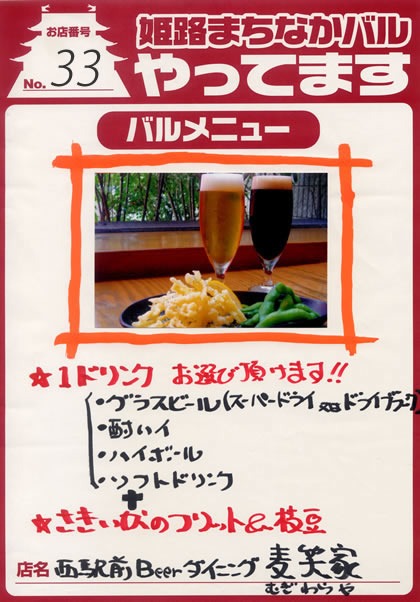 お店番号
No. 33
姫路まちなかバル
やってます
バルメニュー
☆1ドリンク お選び頂けます!!
・グラスビール(スーパードライ or ドライブラック)
・酎ハイ
・ハイボール
・ソフトドリンク
+
☆さきいかのフリット&枝豆
店名 西駅前Beerダイニング 麦笑家
むぎわらや